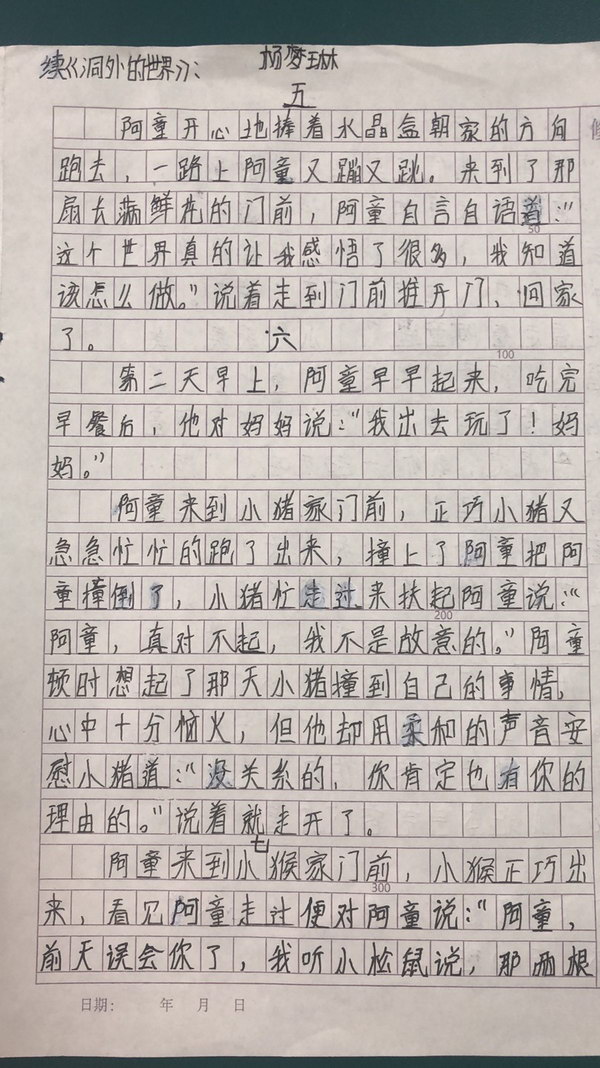 续《洞外的世界》：
杨梦琳
五
阿童开心地捧着水晶盒朝家的方向
跑去，一路上阿童又蹦又跳。来到了那
扇大满鲜花的门前，阿童自言自语着：“
50
这个世界真的让我感悟了很多，我知道
该怎么做。”说着走到门前推开门，回家
了。
六
100
第二天早上，阿童早早起来，吃完
早餐后，他对妈妈说：“我出去玩了！妈
妈。”
阿童来到小猪家门前，正巧小猪又
急急忙忙的跑了出来，撞上了阿童把阿
童撞倒了，小猪忙走过来扶起阿童说：“
200
阿童，真对不起，我不是故意的。”阿童
顿时想起了那天小猪撞到自己的事情，
心中十分恼火，但他却用柔和的声音安
慰小猪道：“没关系的，你肯定也有你的
理由的。”说着就走开了。
七
阿童来到小猴家门前，小猴正巧出
300
来，看见阿童走过便对阿童说：“阿童，
前天误会你了，我听小松鼠说，那两根
日期：　年　月　日